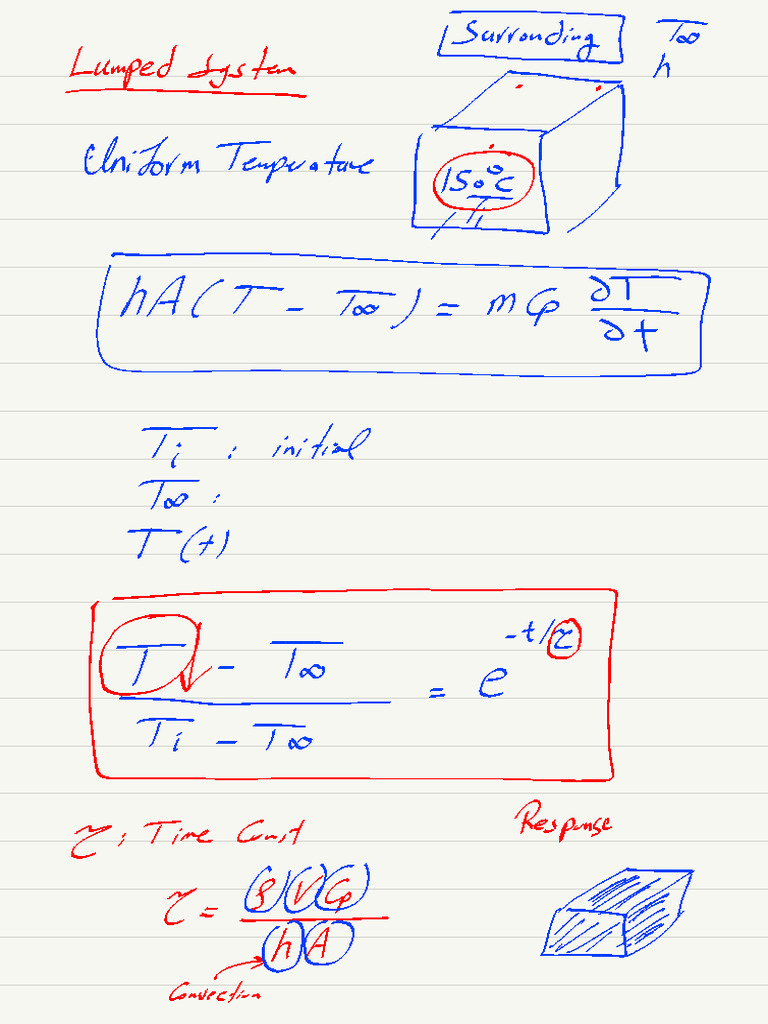 Surronding T∞
h
Lumped System
Uniform Temperature
150°C
Ti
hA(T - T∞) = m Cp ∂T/∂t
Ti : initial
T∞ :
T(t)
T - T∞ / Ti - T∞ = e^-t/τ
τ: Time Const
Response
τ = ρ V Cp / h A
Convection